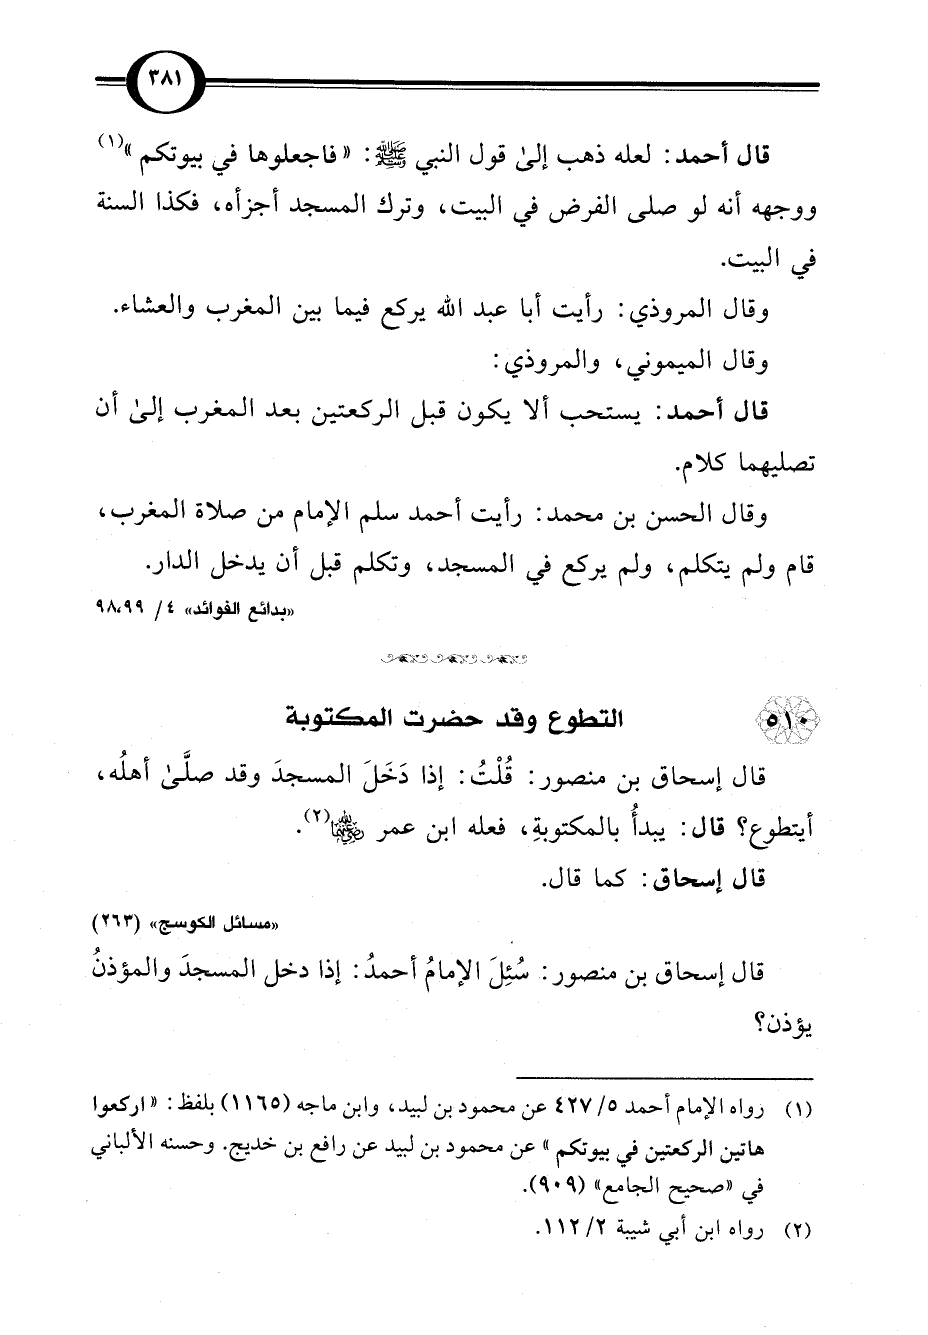 ٣٨١
قال أحمد: لعله ذهب إلىٰ قول النبي ﷺ: «فاجعلوها في بيوتكم»(١)
ووجهه أنه لو صلى الفرض في البيت، وترك المسجد أجزأه، فكذا السنة
في البيت.
وقال المروذي: رأيت أبا عبد الله يركع فيما بين المغرب والعشاء.
وقال الميموني، والمروذي:
قال أحمد: يستحب ألا يكون قبل الركعتين بعد المغرب إلىٰ أن
تصليهما كلام.
وقال الحسن بن محمد: رأيت أحمد سلم الإمام من صلاة المغرب،
قام ولم يتكلم، ولم يركع في المسجد، وتكلم قبل أن يدخل الدار.
«بدائع الفوائد» ٤/ ٩٨،٩٩
٥١٠ التطوع وقد حضرت المكتوبة
قال إسحاق بن منصور: قُلْتُ: إذا دَخَلَ المسجدَ وقد صلَّىٰ أهلُه،
أيتطوع؟ قال: يبدأُ بالمكتوبةِ، فعله ابن عمر رضي الله عنهما(٢).
قال إسحاق: كما قال.
«مسائل الكوسج» (٢٦٣)
قال إسحاق بن منصور: سُئِلَ الإمامُ أحمدُ: إذا دخل المسجدَ والمؤذنُ
يؤذن؟
(١) رواه الإمام أحمد ٥/ ٤٢٧ عن محمود بن لبيد، وابن ماجه (١١٦٥) بلفظ: «اركعوا
هاتين الركعتين في بيوتكم» عن محمود بن لبيد عن رافع بن خديج. وحسنه الألباني
في «صحيح الجامع» (٩٠٩).
(٢) رواه ابن أبي شيبة ٢/ ١١٢.